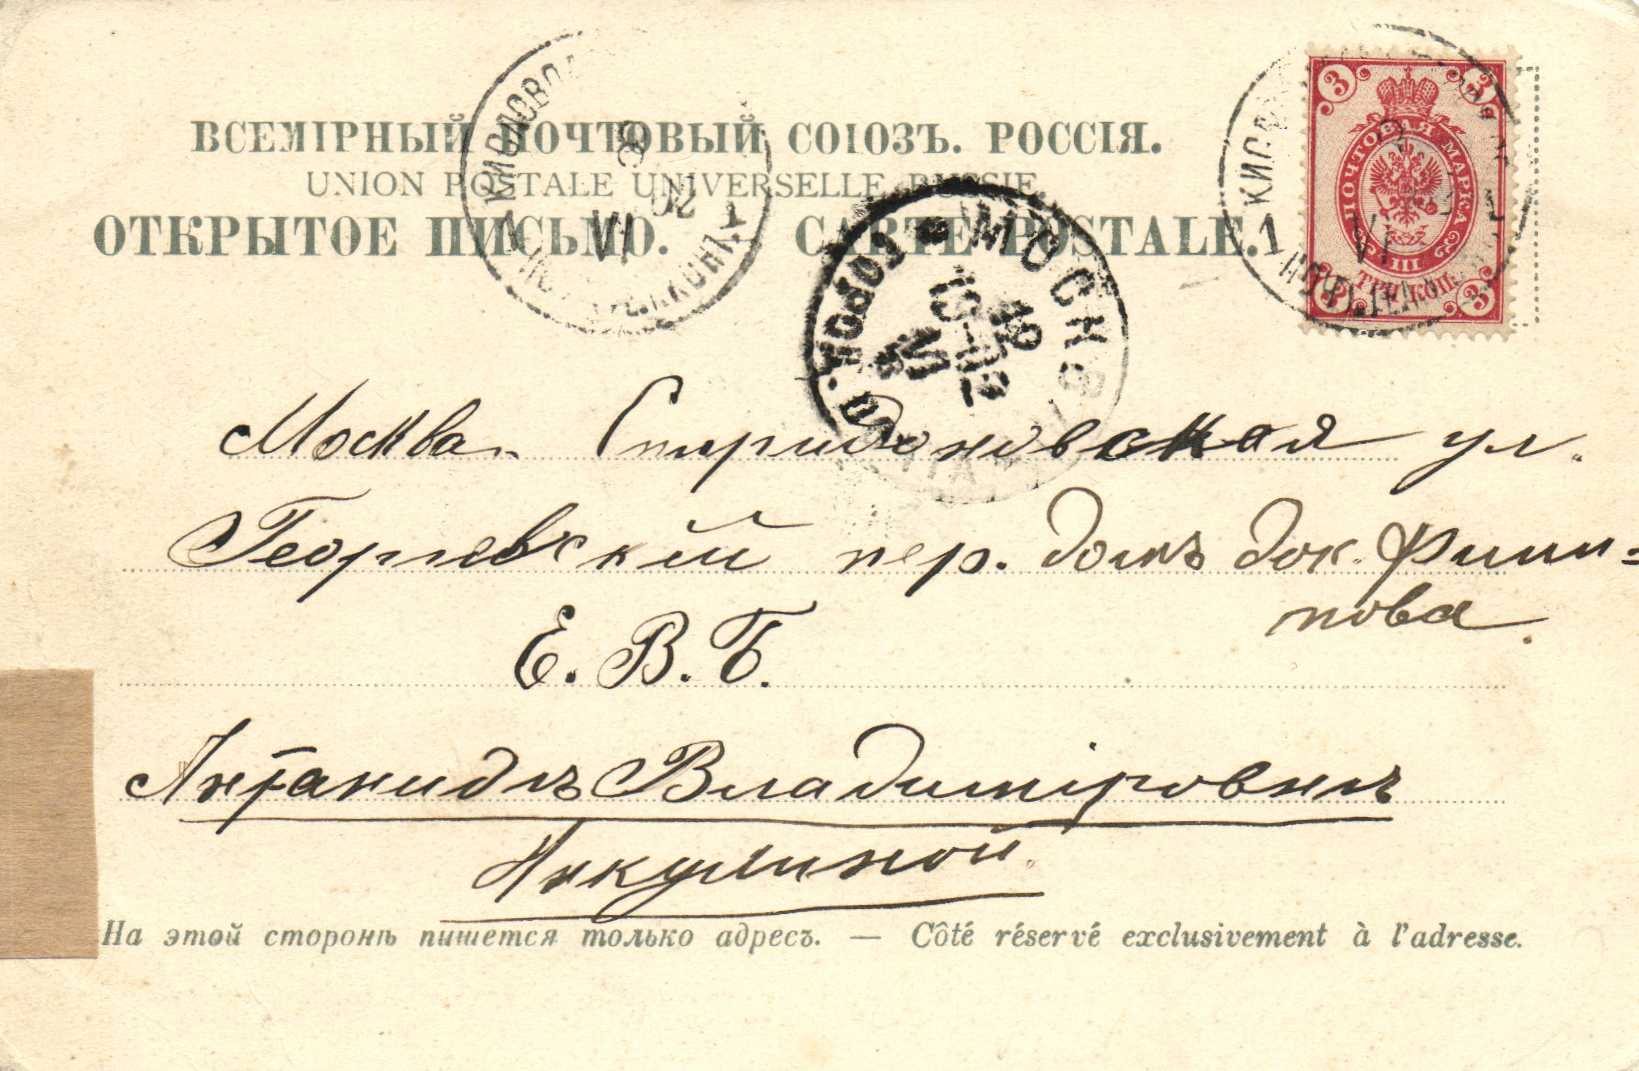 ВСЕМІРНЫЙ ПОЧТОВЫЙ СОЮЗЪ. РОССІЯ.
UNION POSTALE UNIVERSELLE. RUSSIE
ОТКРЫТОЕ ПИСЬМО. CARTE POSTALE.
КИСЛОВОД
VI 02
1
КИСЛ
1
VI
МОСКВА
ГОРОД.
12
VI
3
3
ПОЧТОВАЯ МАРКА
III
ТРИ КОП.
3
3
Москва. Спиридоновская ул.
Георгіевскій пер. домъ док. Филип=
пова.
Е. В. Б.
Владиміровнѣ
Никулиной.
На этой сторонѣ пишется только адресъ. — Côté réservé exclusivement à l'adresse.